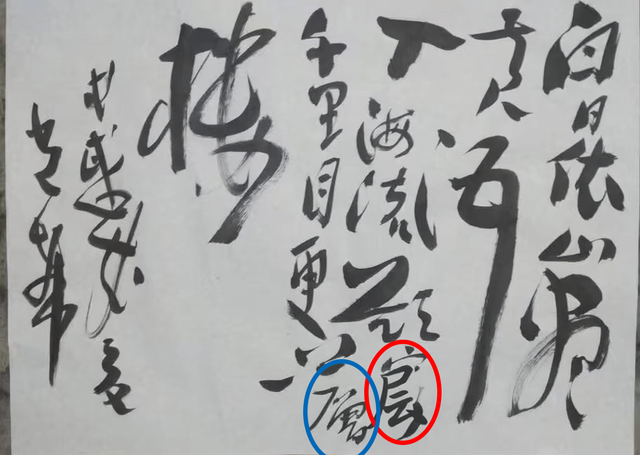 白日依山盡
黄河
入海流欲窮
千里目更上一層
樓
戊戌